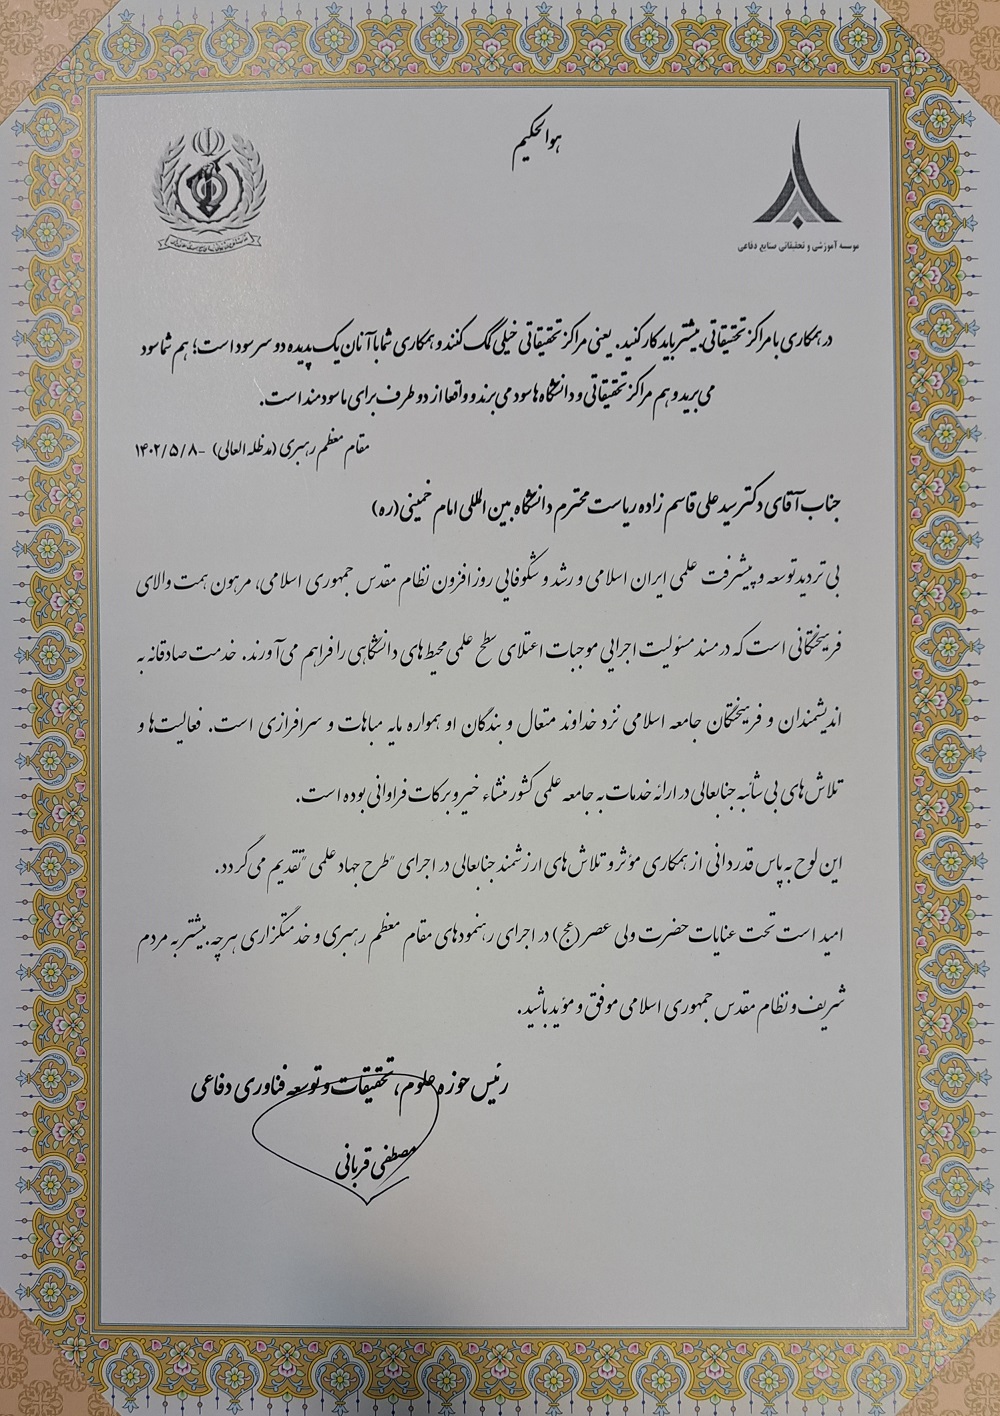 هوالحکیم
موسسه آموزشی و تحقیقاتی صنایع دفاعی
در همکاری با مراکز تحقیقاتی، بیشتر باید کار کنید. یعنی مراکز تحقیقاتی خیلی کمک کنند و همکاری شما با آنان یک پدیده دو سر سود است؛ هم شما سود
می برید و هم مراکز تحقیقاتی و دانشگاه ها سود می برند و واقعا از دو طرف برای ما سودمند است.
مقام معظم رهبری (مدظله العالی) -۱۴۰۲/۵/۸
جناب آقای دکتر سید علی قاسم زاده ریاست محترم دانشگاه بین المللی امام خمینی(ره)
بی تردید توسعه و پیشرفت علمی ایران اسلامی و رشد و شکوفایی روز افزون نظام مقدس جمهوری اسلامی، مرهون همت والای
فرهیختگانی است که در مسند مسئولیت اجرایی موجبات اعتلای سطح علمی محیط های دانشگاهی را فراهم می آورند. خدمت صادقانه به
اندیشمندان و فرهیختگان جامعه اسلامی نزد خداوند متعال و بندگان او همواره مایه مباهات و سرافرازی است. فعالیت ها و
تلاش های بی شائبه جنابعالی در ارائه خدمات به جامعه علمی کشور منشاء خیر و برکات فراوانی بوده است.
این لوح به پاس قدردانی از همکاری مؤثر و تلاش های ارزشمند جنابعالی در اجرای "طرح جهاد علمی" تقدیم می گردد.
امید است تحت عنایات حضرت ولی عصر(عج) در اجرای رهنمودهای مقام معظم رهبری و خدمتگزاری هرچه بیشتر به مردم
شریف و نظام مقدس جمهوری اسلامی موفق و مؤید باشید.
رئیس حوزه علوم، تحقیقات و توسعه فناوری دفاعی
مصطفی قربانی